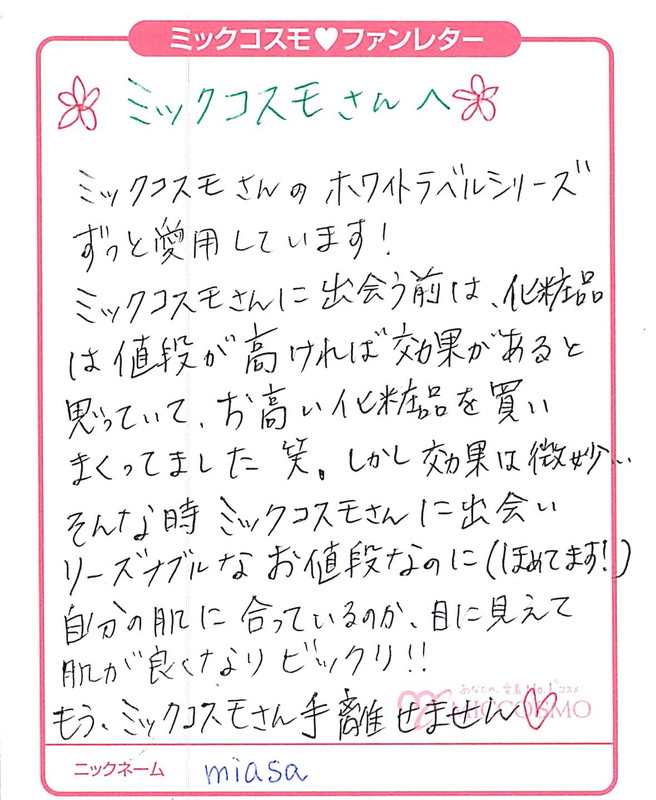 ミックコスモ♥ファンレター
ミックコスモさんへ
ミックコスモさんのホワイトラベルシリーズ
ずっと愛用しています!
ミックコスモさんに出会う前は、化粧品
は値段が高ければ効果があると
思っていて、お高い化粧品を買い
まくってました笑。しかし効果は微妙…
そんな時ミックコスモさんに出会い
リーズナブルなお値段なのに(ほめてます!)
自分の肌に合っているのか、目に見えて
肌が良くなりビックリ!!
あなたの、愛着No.1コスメ
MICCOSMO
もう、ミックコスモさん手離せません♡
ニックネーム miasa